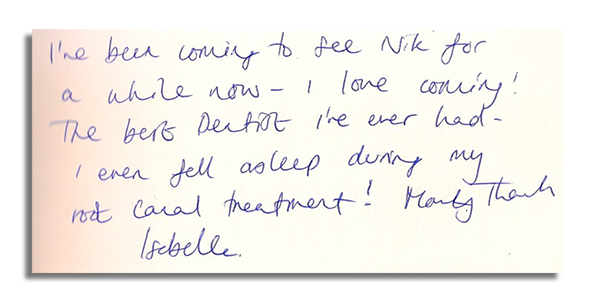 I've been coming to see Nik for
a while now - I love coming!
The best Dentist I've ever had -
I even fell asleep during my
root canal treatment! Many Thank
Isabelle.